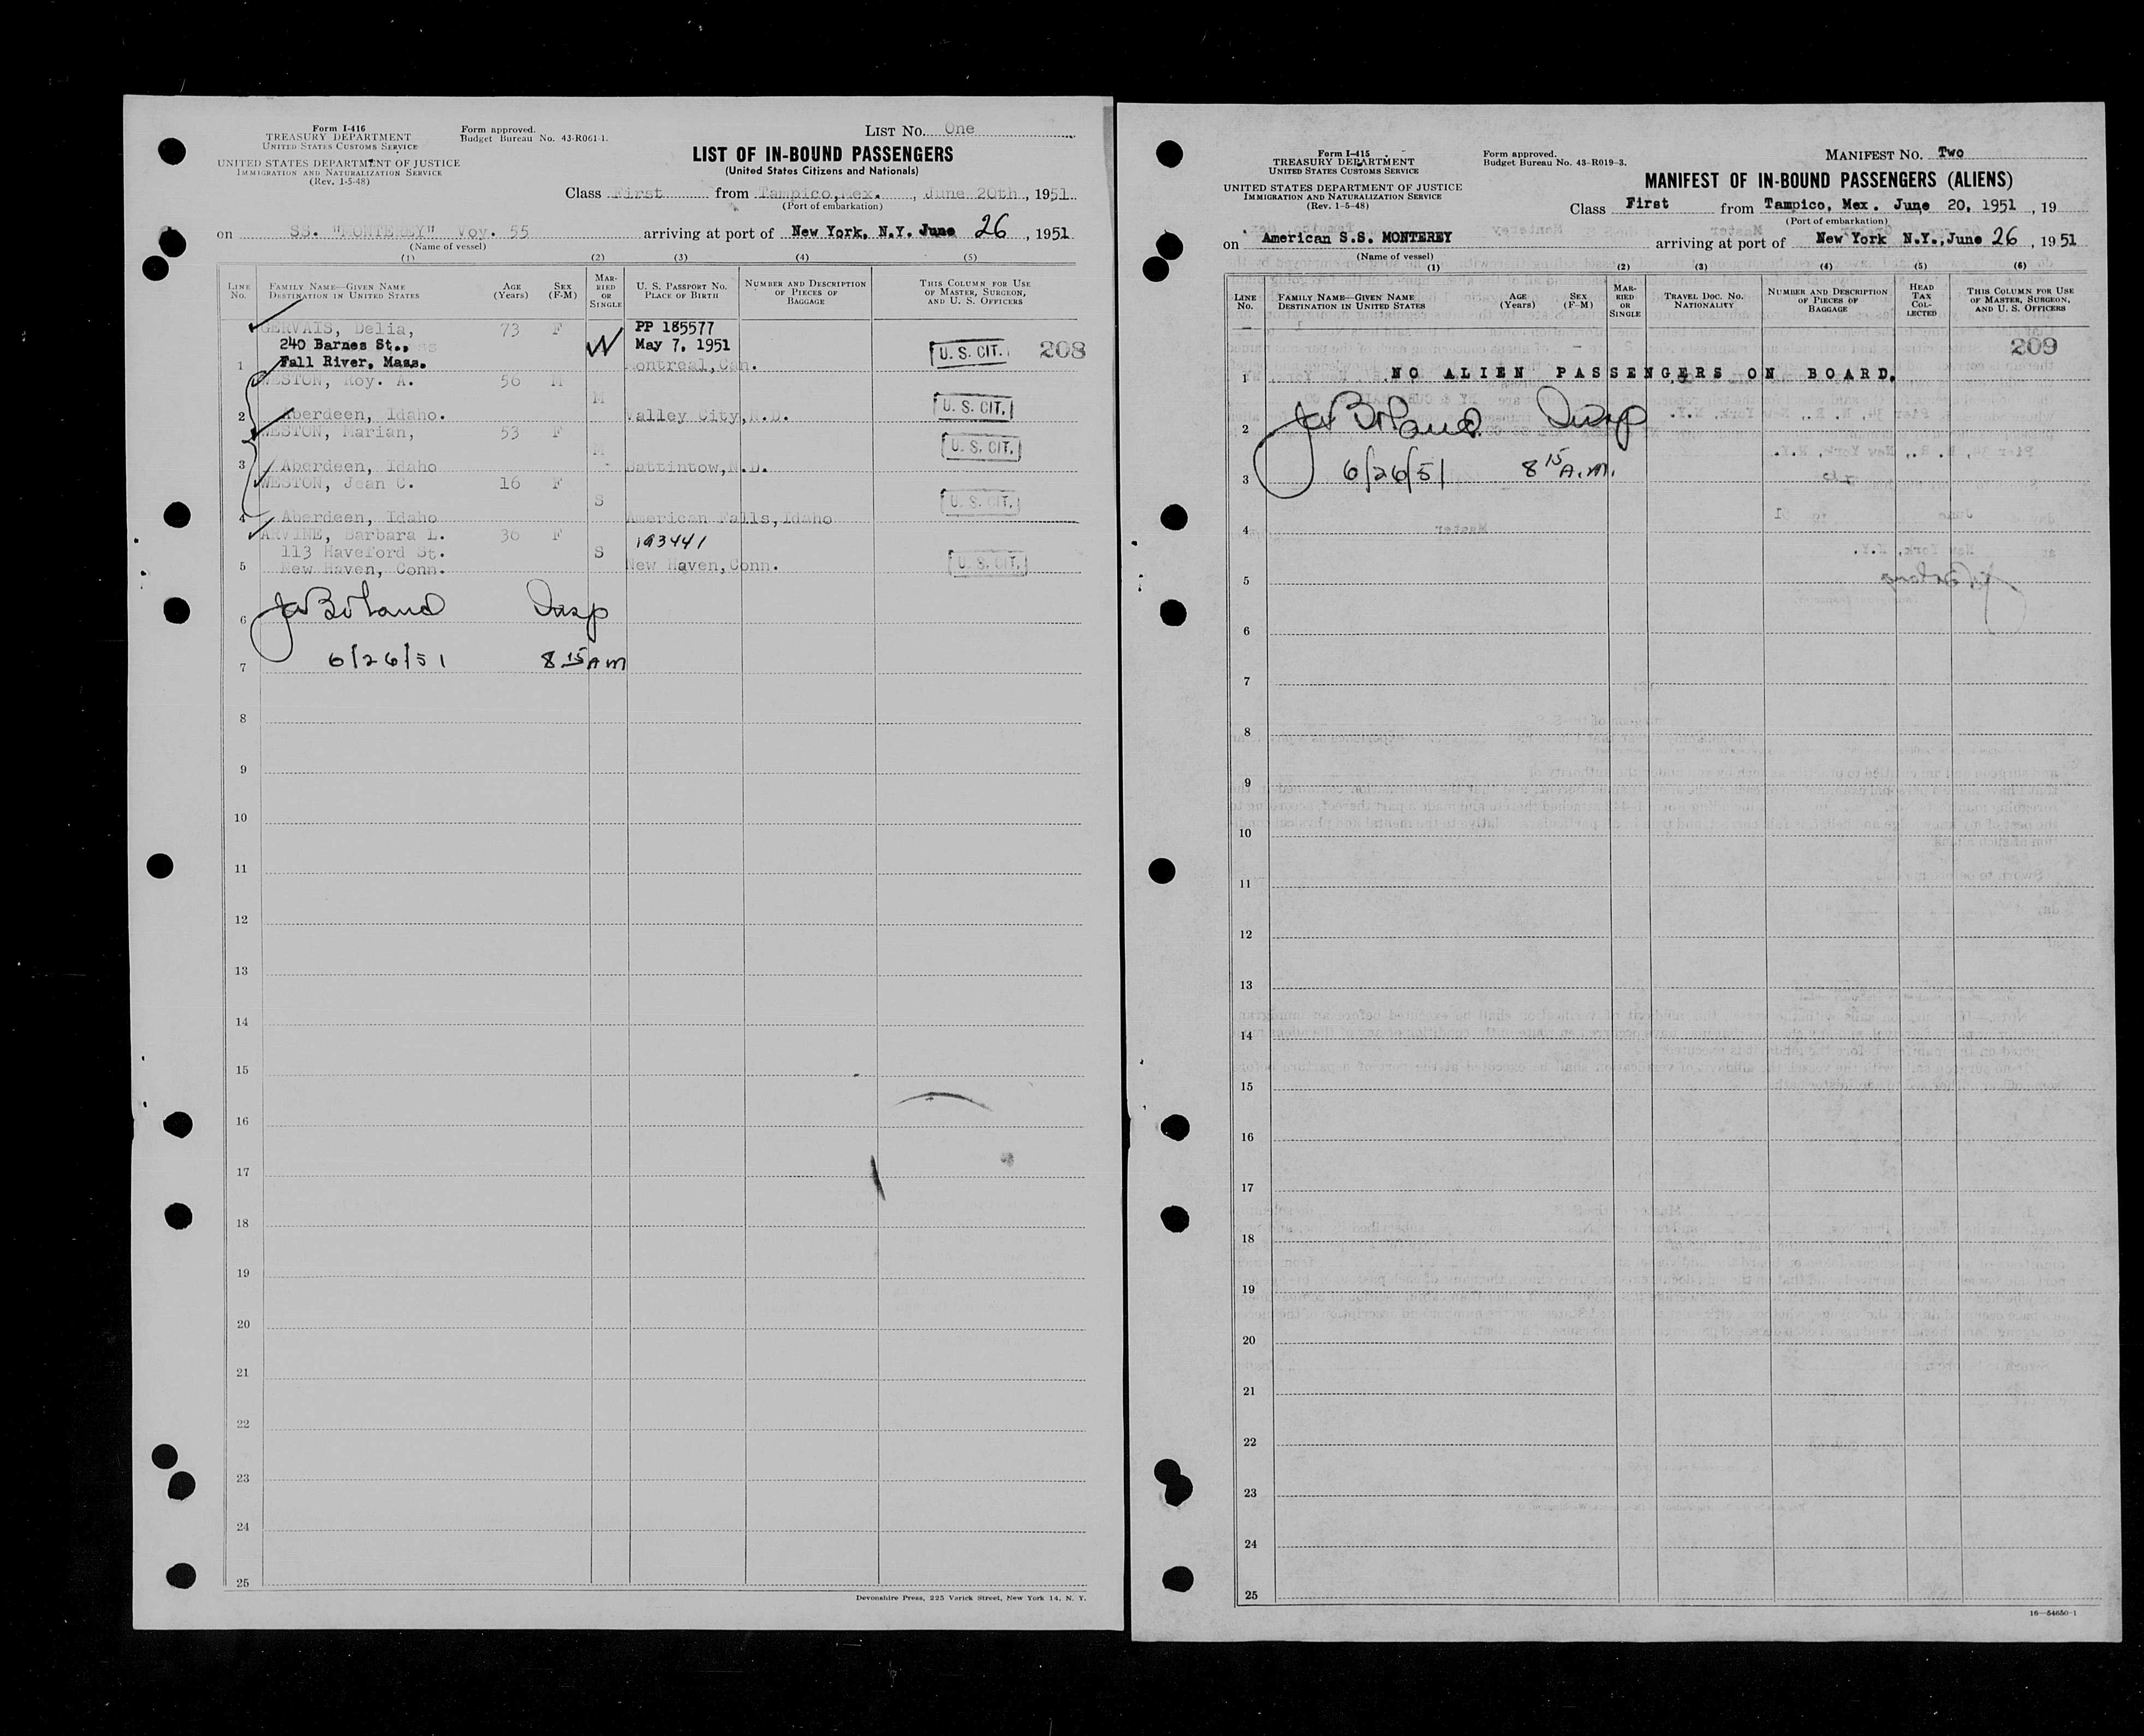 Form I-416
TREASURY DEPARTMENT
UNITED STATES CUSTOMS SERVICE
UNITED STATES DEPARTMENT OF JUSTICE
IMMIGRATION AND NATURALIZATION SERVICE
(Rev. 1-5-48)
Form approved.
Budget Bureau No. 43-R061-1.
LIST No. One
LIST OF IN-BOUND PASSENGERS
(United States Citizens and Nationals)
Class First from Tampico, Mex., June 20th, 1951
(Port of embarkation)
on SS. "MONTEREY" Voy. 55 arriving at port of New York, N.Y. June 26, 1951
(Name of vessel)
(1) (2) (3) (4) (5)
LINE No. FAMILY NAME—GIVEN NAME DESTINATION IN UNITED STATES AGE (Years) SEX (F-M) MARRIED OR SINGLE U. S. PASSPORT NO. PLACE OF BIRTH NUMBER AND DESCRIPTION OF PIECES OF BAGGAGE THIS COLUMN FOR USE OF MASTER, SURGEON, AND U. S. OFFICERS
GERVAIS, Delia, 73 F PP 185577
240 Barnes St., W May 7, 1951
1 Fall River, Mass. Montreal, Can. U. S. CIT. 208
WESTON, Roy. A. 56 M
M
2 Aberdeen, Idaho. Valley City, N.D. U. S. CIT.
WESTON, Marian, 53 F
M
3 Aberdeen, Idaho Battintow, N.D. U. S. CIT.
WESTON, Jean C. 16 F
S
4 Aberdeen, Idaho American Falls, Idaho U. S. CIT.
ARVINE, Barbara L. 36 F 193441
113 Haveford St. S
5 New Haven, Conn. New Haven, Conn. U. S. CIT.
6 Boland Insp
7 6/26/51 8 15 AM
8
9
10
11
12
13
14
15
16
17
18
19
20
21
22
23
24
25
Devonshire Press, 225 Varick Street, New York 14, N. Y.
Form I-415
TREASURY DEPARTMENT
UNITED STATES CUSTOMS SERVICE
UNITED STATES DEPARTMENT OF JUSTICE
IMMIGRATION AND NATURALIZATION SERVICE
(Rev. 1-5-48)
Form approved.
Budget Bureau No. 43-R019-3.
MANIFEST No. Two
MANIFEST OF IN-BOUND PASSENGERS (ALIENS)
Class First from Tampico, Mex. June 20, 1951, 19
(Port of embarkation)
on American S.S. MONTEREY arriving at port of New York N.Y., June 26, 1951
(Name of vessel)
(1) (2) (3) (4) (5) (6)
LINE No. FAMILY NAME—GIVEN NAME DESTINATION IN UNITED STATES AGE (Years) SEX (F-M) MARRIED OR SINGLE TRAVEL DOC. NO. NATIONALITY NUMBER AND DESCRIPTION OF PIECES OF BAGGAGE HEAD TAX COLLECTED THIS COLUMN FOR USE OF MASTER, SURGEON, AND U. S. OFFICERS
209
1 NO ALIEN PASSENGERS ON BOARD.
2 Boland Insp
3 6/26/51 8 15 A.M.
4
5
6
7
8
9
10
11
12
13
14
15
16
17
18
19
20
21
22
23
24
25
16—54650-1